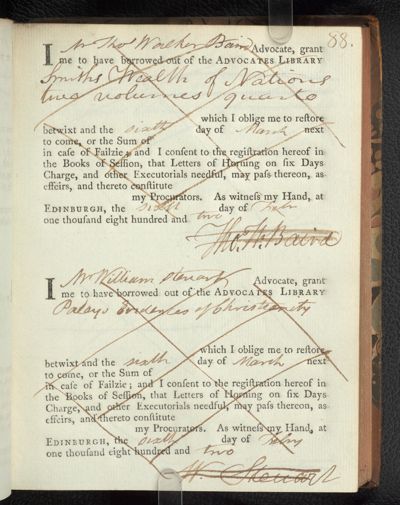 88.
I Mr Thos Walker Baird Advocate, grant
me to have borrowed out of the ADVOCATES LIBRARY
Smiths Wealth of Nations
two volumes quarto
which I oblige me to reſtore
betwixt and the sixth day of March next
to come, or the Sum of
in caſe of Failzie; and I conſent to the regiſtration hereof in
the Books of Seſſion, that Letters of Horning on ſix Days
Charge, and other Executorials needful, may paſs thereon, as
effeirs, and thereto conſtitute
my Procurators. As witneſs my Hand, at
EDINBURGH, the sixth day of Febry
one thouſand eight hundred and two
Tho. W. Baird
I Mr William Steuart Advocate, grant
me to have borrowed out of the ADVOCATES LIBRARY
Paleys Evidences of Christianity
which I oblige me to reſtore
betwixt and the sixth day of March next
to come, or the Sum of
in caſe of Failzie; and I conſent to the regiſtration hereof in
the Books of Seſſion, that Letters of Horning on ſix Days
Charge, and other Executorials needful, may paſs thereon, as
effeirs, and thereto conſtitute
my Procurators. As witneſs my Hand, at
EDINBURGH, the sixth day of Febry
one thouſand eight hundred and two
W. Steuart